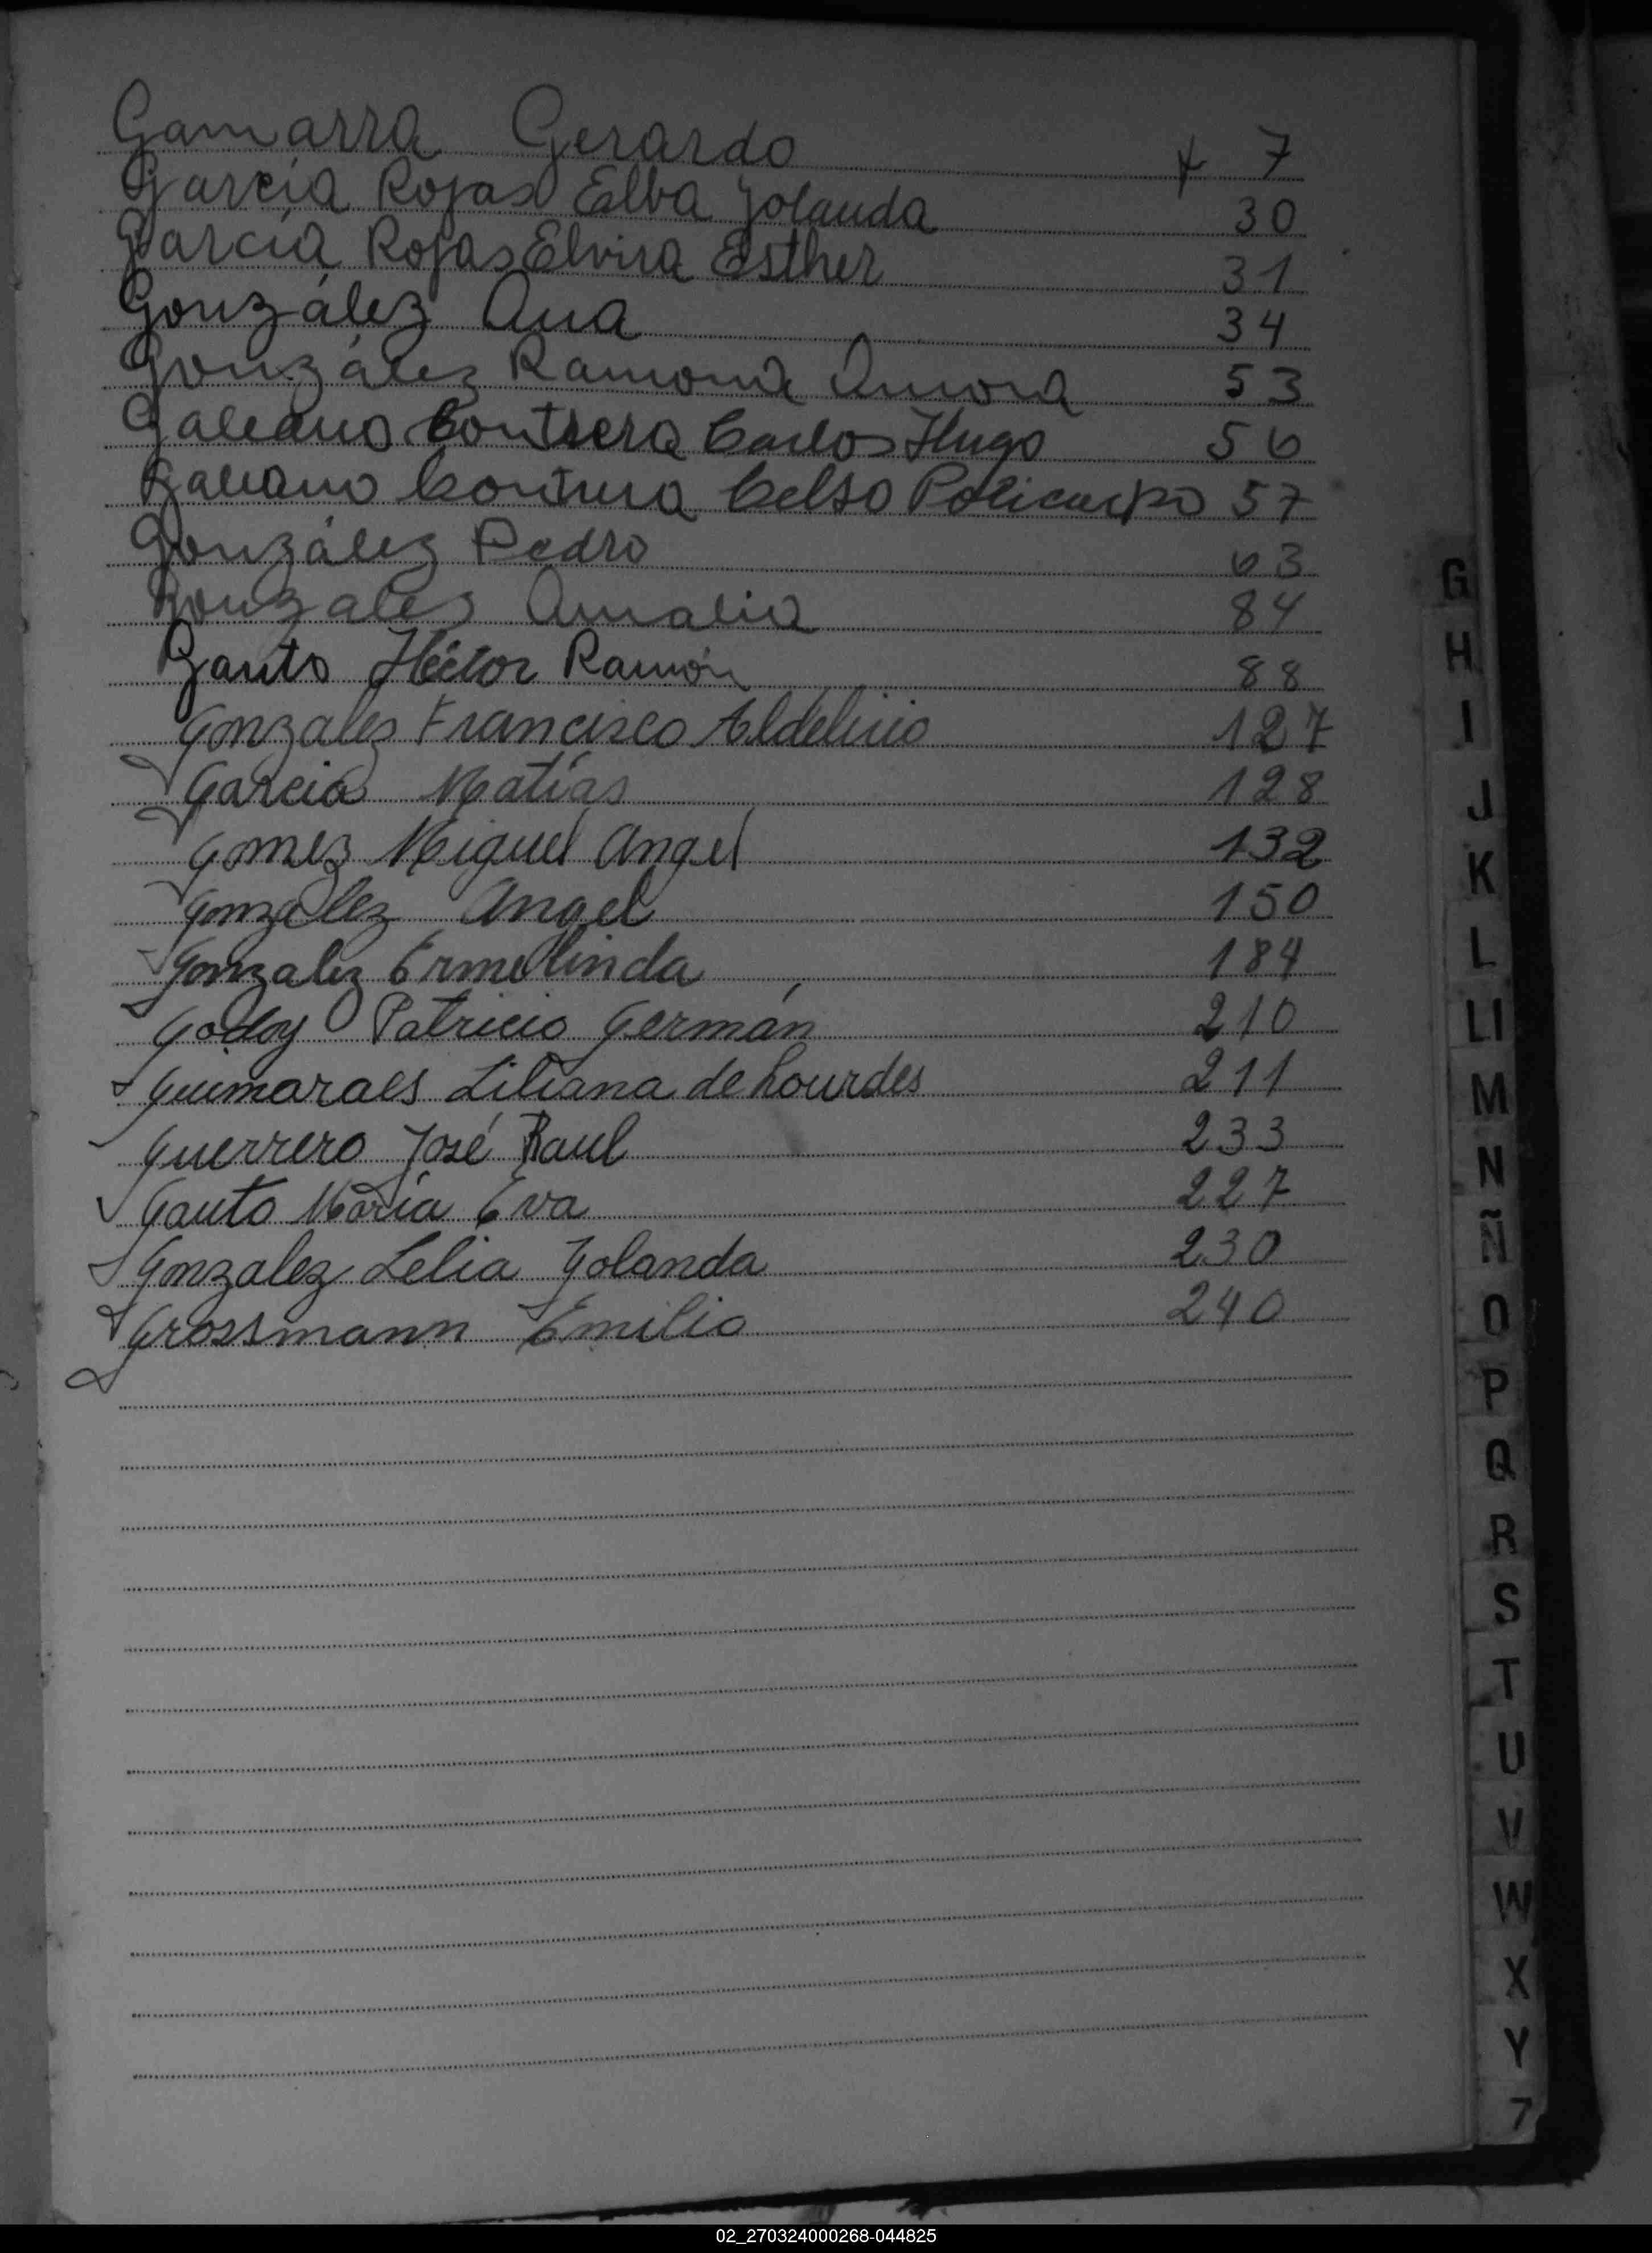 Gamarra Gerardo + 7
García Rojas Elba Yolanda 30
García Rojas Elvira Esther 31
González Ana 34
González Ramona 53
Galeano Contrera Carlos Hugo 56
Galeano Contrera Celso Policarpo 57
González Pedro 63
Gonzales Amalia 84
Gauto Héctor Ramón 88
Gonzales Francisco 127
Garcia Matías 128
Gomez Miguel Angel 132
Gonzalez Angel 150
Gonzalez Ermelinda 184
Godoy Patricio Germán 210
Guimaraes Liliana de Lourdes 211
Guerrero José Raul 233
Gauto María Eva 227
Gonzalez Lelia Yolanda 230
Grossmann Emilio 240
G
H
I
J
K
L
Ll
M
N
Ñ
O
P
Q
R
S
T
U
V
W
X
Y
02_270324000268-044825